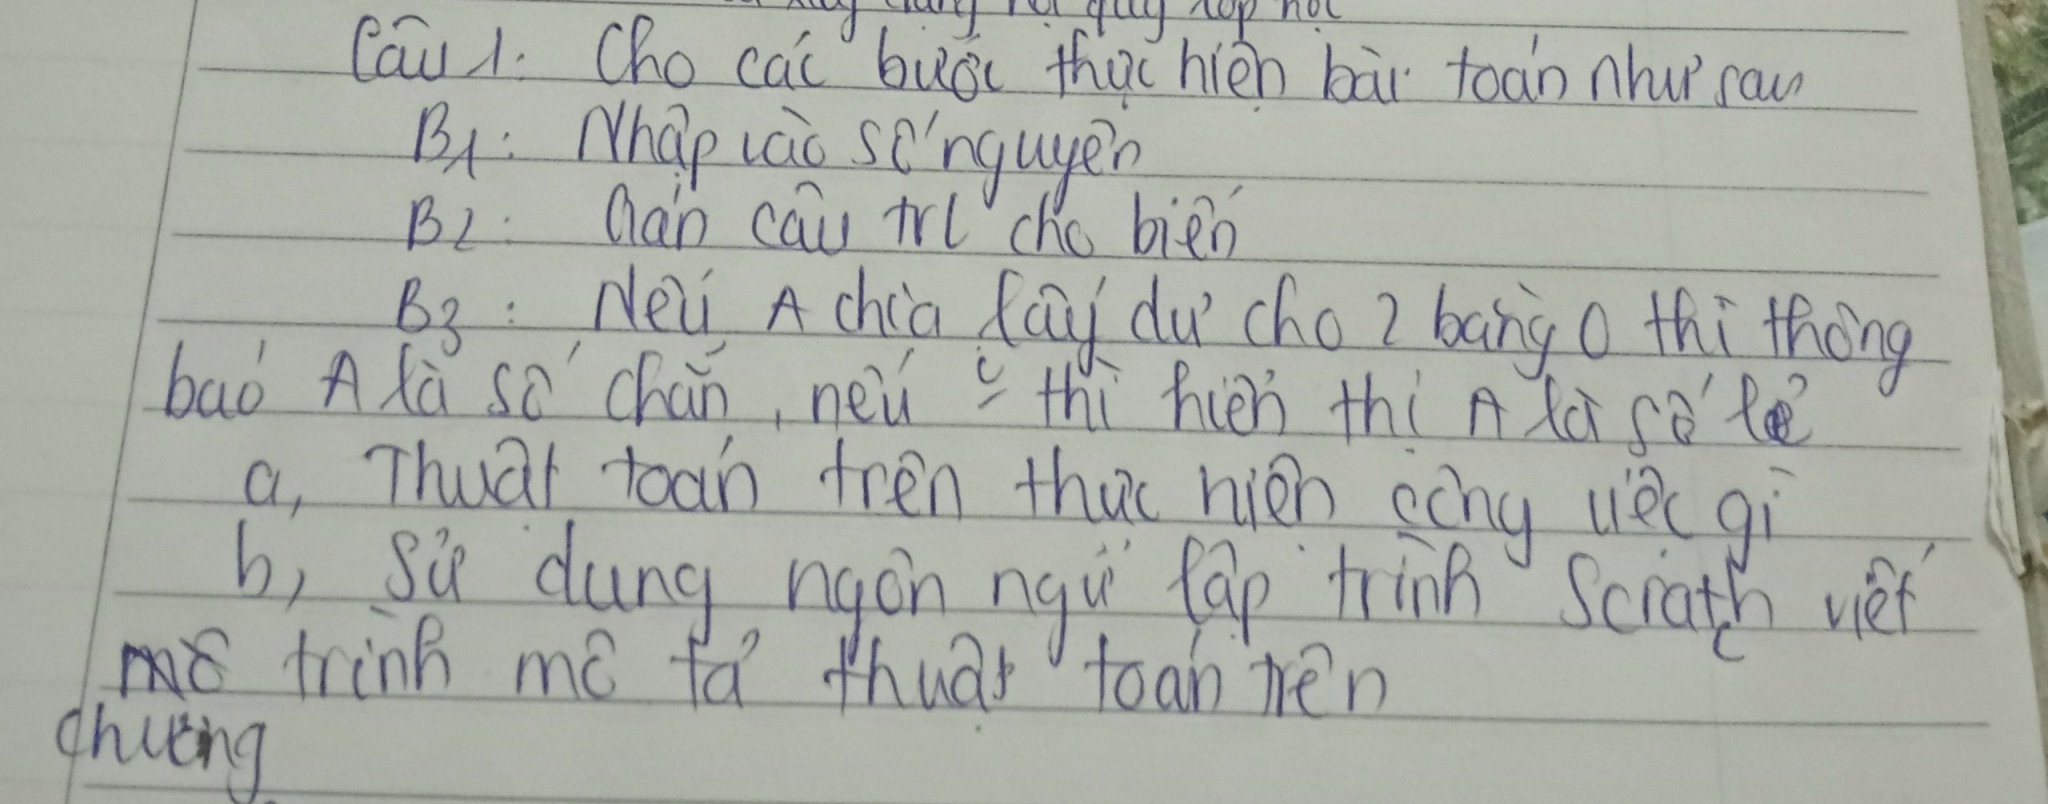 quy lớp học
Câu 1: Cho các bước thực hiện bài toán như sau
B1: Nhập vào số nguyên
B2: Gán câu trl cho biến
B3: Nếu A chia lấy dư cho 2 bằng 0 thì thông
báo A là số chẵn, nếu thì hiển thị A là số lẻ
a, Thuật toán trên thực hiện công việc gì
b, Sử dụng ngôn ngữ lập trình Scrath viết
c
mô trình mô tả thuật toán trên
chương